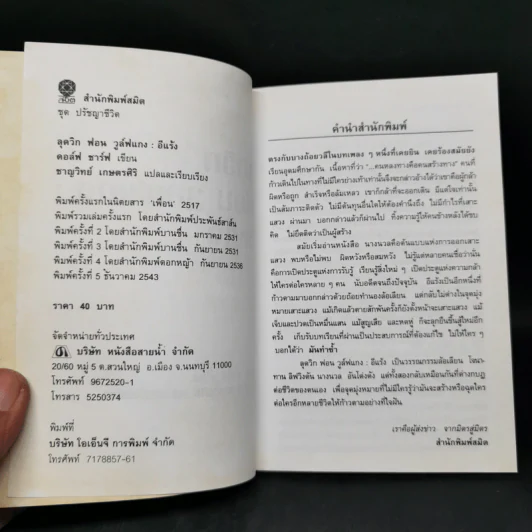 สำนักพิมพ์สมิต
ชุด ปรัชญาชีวิต
ลุดวิก ฟอน วูล์ฟแกง : อีแร้ง
ดอล์ฟ ชาร์ฟ เขียน
ชาญวิทย์ เกษตรศิริ แปลและเรียบเรียง
พิมพ์ครั้งแรกในนิตยสาร 'เพื่อน' 2517
พิมพ์รวมเล่มครั้งแรก โดยสำนักพิมพ์ประพันธ์สาส์น
พิมพ์ครั้งที่ 2 โดยสำนักพิมพ์บานชื่น มกราคม 2531
พิมพ์ครั้งที่ 3 โดยสำนักพิมพ์บานชื่น กันยายน 2531
พิมพ์ครั้งที่ 4 โดยสำนักพิมพ์ดอกหญ้า กันยายน 2536
พิมพ์ครั้งที่ 5 ธันวาคม 2543
ราคา 40 บาท
จัดจำหน่ายทั่วประเทศ
บริษัท หนังสือสายน้ำ จำกัด
20/60 หมู่ 5 ต.สวนใหญ่ อ.เมือง จ.นนทบุรี 11000
โทรศัพท์ 9672520-1
โทรสาร 5250374
พิมพ์ที่
บริษัท โอเอ็นจี การพิมพ์ จำกัด
โทรศัพท์ 7178857-61
คำนำสำนักพิมพ์
ตรงกับบางถ้อยวลีในบทเพลง ๆ หนึ่งที่เคยยิน เคยร้องสมัยยัง
เรียนอุดมศึกษากัน เนื้อหาที่ว่า "...คนหลงทางคือคนสร้างทาง" คนที่
ก้าวเดินไปในทางที่ไม่มีใครย่างเท้าเท่านั้นจึงจะกล่าวอ้างได้ว่าเขาคือผู้กล้า
ผิดหรือถูก สำเร็จหรือล้มเหลว เขากล้าที่จะออกเดิน
แสวง ผ่านมา บอกกล่าวแล้วก็ผ่านไป ทิ้งความรู้ให้คนข้างหลังได้ขบ
คิด ไม่ยึดติดว่าเป็นผู้สร้าง
สมัยเริ่มอ่านหนังสือ นางนวลคือต้นแบบแห่งการออกเสาะ
แสวง พบหรือไม่พบ ผิดหวังหรือสมหวัง ไม่รู้แต่หลายคนเชื่อว่านั้น
คือการเปิดประตูแห่งการรับรู้ เรียนรู้สิ่งใหม่ ๆ เปิดประตูแห่งความกล้า
ให้ใครต่อใครหลาย ๆ คน นับอดีตจนถึงปัจจุบัน อีแร้งเป็นอีกหนึ่งที่
ก้าวตามมาบอกกล่าวด้วยถ้อยทำนองล้อเลียน แต่กลับไม่ต่างในจุดมุ่ง
หมายเสาะแสวง
ครั้ง เก็บรับบทเรียนที่ผ่านเป็นประสบการณ์ที่ต้องแก้ไข ไม่ให้ใคร ๆ
บอกได้ว่า มันทำซ้ำ
ลุดวิก ฟอน วูล์ฟแกง : อีแร้ง เป็นวรรณกรรมล้อเลียน โจนา-
ทาน ลิฟวิงตัน นางนวล อันโด่งดัง แต่ทั้งสองกลับเหมือนกันที่ต่างกบฏ
ต่อชีวิตของตนเอง เพื่อจุดมุ่งหมายที่ไม่มีใครรู้ว่ามันจะสร้างหรือฉุดใคร
ต่อใครอีกหลายชีวิตให้ก้าวตามอย่างที่ใจฝัน
เราคือผู้ส่งข่าว จากมิตรสู่มิตร
สำนักพิมพ์สมิต